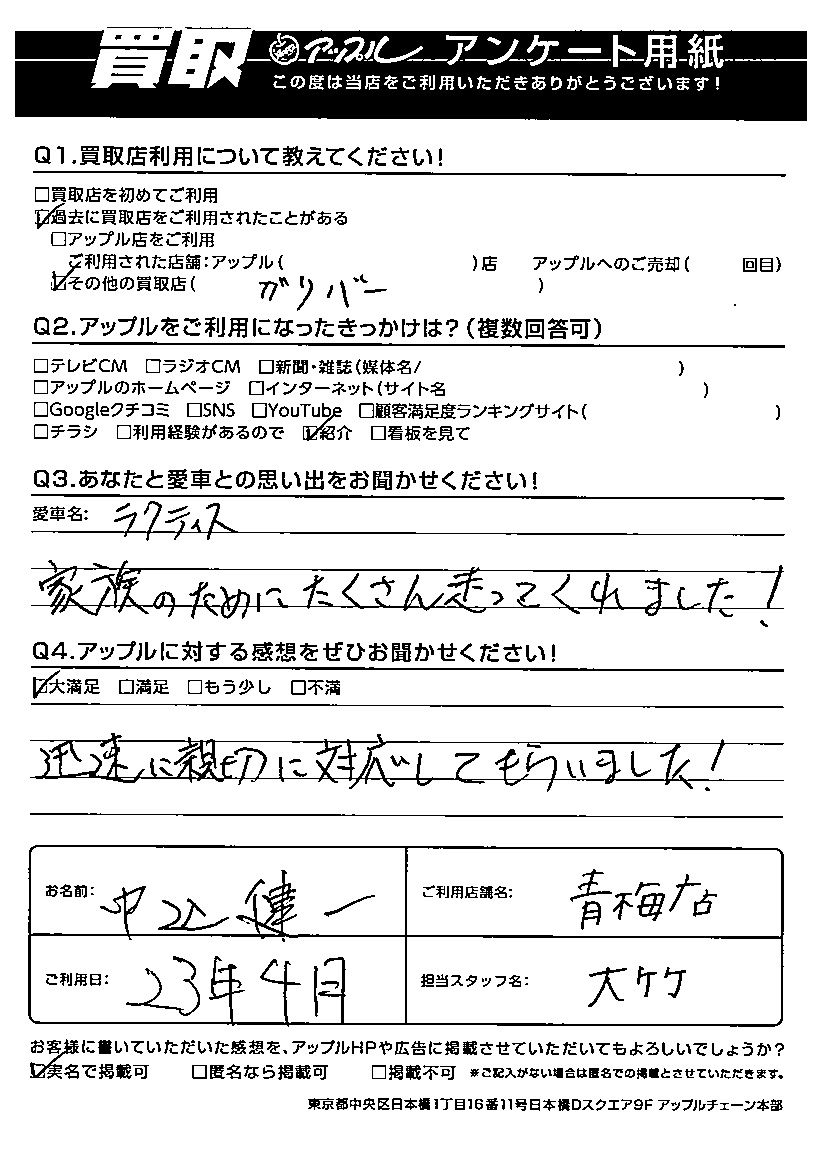 買取 アップル アンケート用紙
この度は当店をご利用いただきありがとうございます！
Q1.買取店利用について教えてください！
□買取店を初めてご利用
☑過去に買取店をご利用されたことがある
□アップル店をご利用
ご利用された店舗：アップル（ ）店 アップルへのご売却（ 回目）
☑その他の買取店（ ガリバー ）
Q2.アップルをご利用になったきっかけは？（複数回答可）
□テレビCM □ラジオCM □新聞・雑誌（媒体名/ ）
□アップルのホームページ □インターネット（サイト名 ）
□Googleクチコミ □SNS □YouTube □顧客満足度ランキングサイト（ ）
□チラシ □利用経験があるので ☑紹介 □看板を見て
Q3.あなたと愛車との思い出をお聞かせください！
愛車名： ラクティス
家族のためにたくさん走ってくれました！
Q4.アップルに対する感想をぜひお聞かせください！
☑大満足 □満足 □もう少し □不満
迅速に親切に対応してもらいました！
お名前： 中込 健一
ご利用店舗名： 青梅店
ご利用日： 23年4月
担当スタッフ名： 大竹
お客様に書いていただいた感想を、アップルHPや広告に掲載させていただいてもよろしいでしょうか？
☑実名で掲載可 □匿名なら掲載可 □掲載不可 ※ご記入がない場合は匿名での掲載とさせていただきます。
東京都中央区日本橋1丁目16番11号日本橋Dスクエア9F アップルチェーン本部